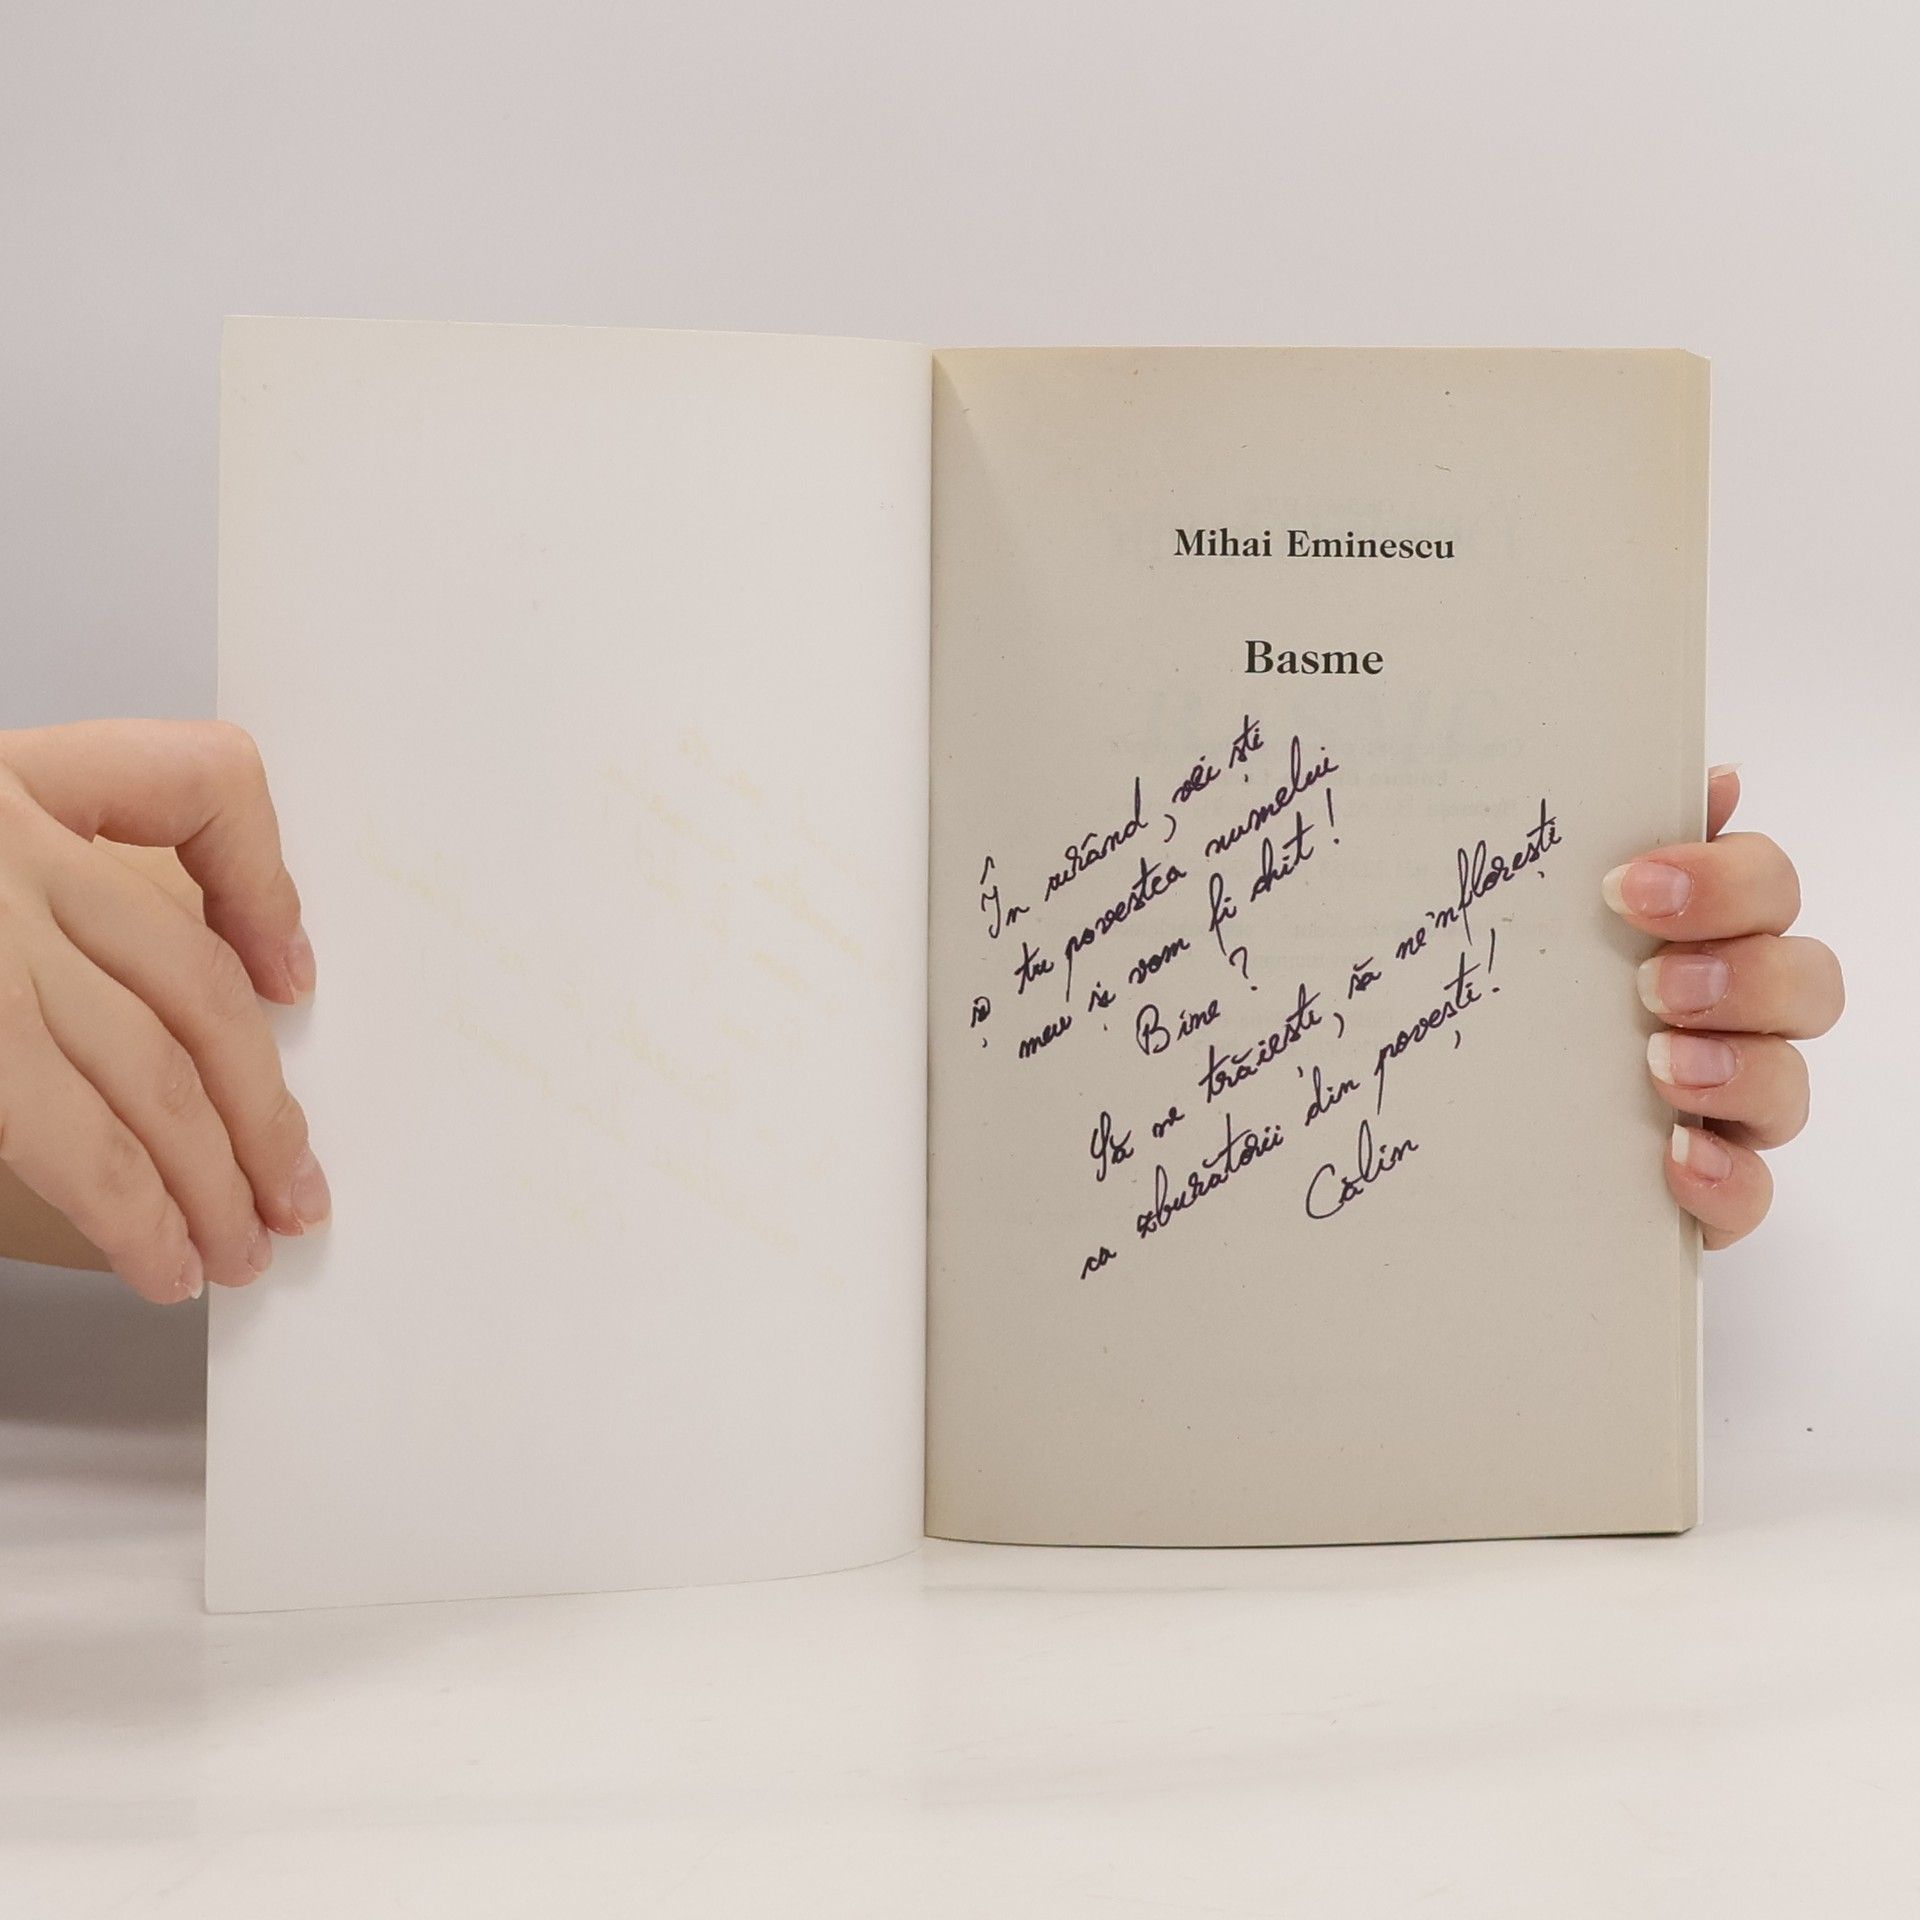 Mihai Eminescu
Basme
În curând, vei ști
și tu povestea numelui
meu și vom fi chit!
Bine?
Să ne trăiești, să ne'nflorești
ca zburătorii din povești!
Călin